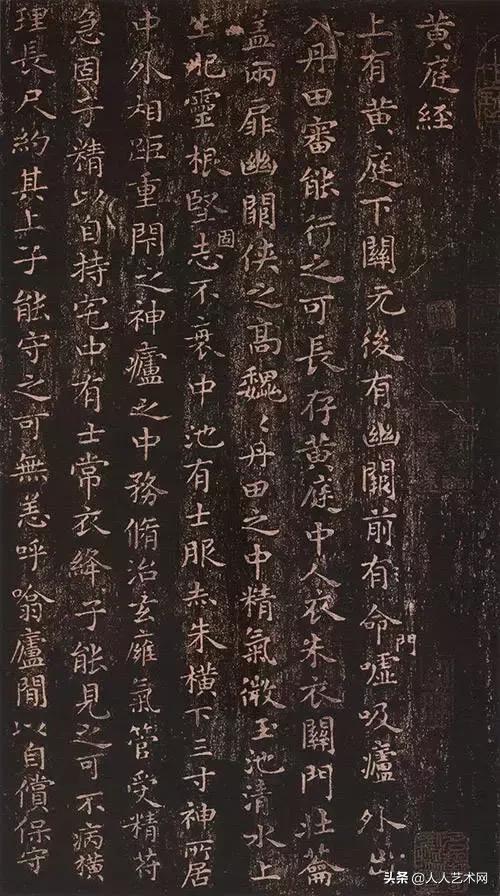 黄庭經
上有黄庭下關元後有幽闕前有命門嘘吸廬外出
入丹田審能行之可長存黄庭中人衣朱衣關門壯蘥
蓋兩扉幽闕俠之高魏〻丹田之中精氣微玉池清水上
生肥靈根堅固志不衰中池有士服赤朱横下三寸神所居
中外相距重閇之神廬之中務脩治玄廱氣管受精苻
急固子精以自持宅中有士常衣絳子能見之可不病横
理長尺約其上子能守之可無恙呼噏廬閒以自償保守
头条 @人人艺术网